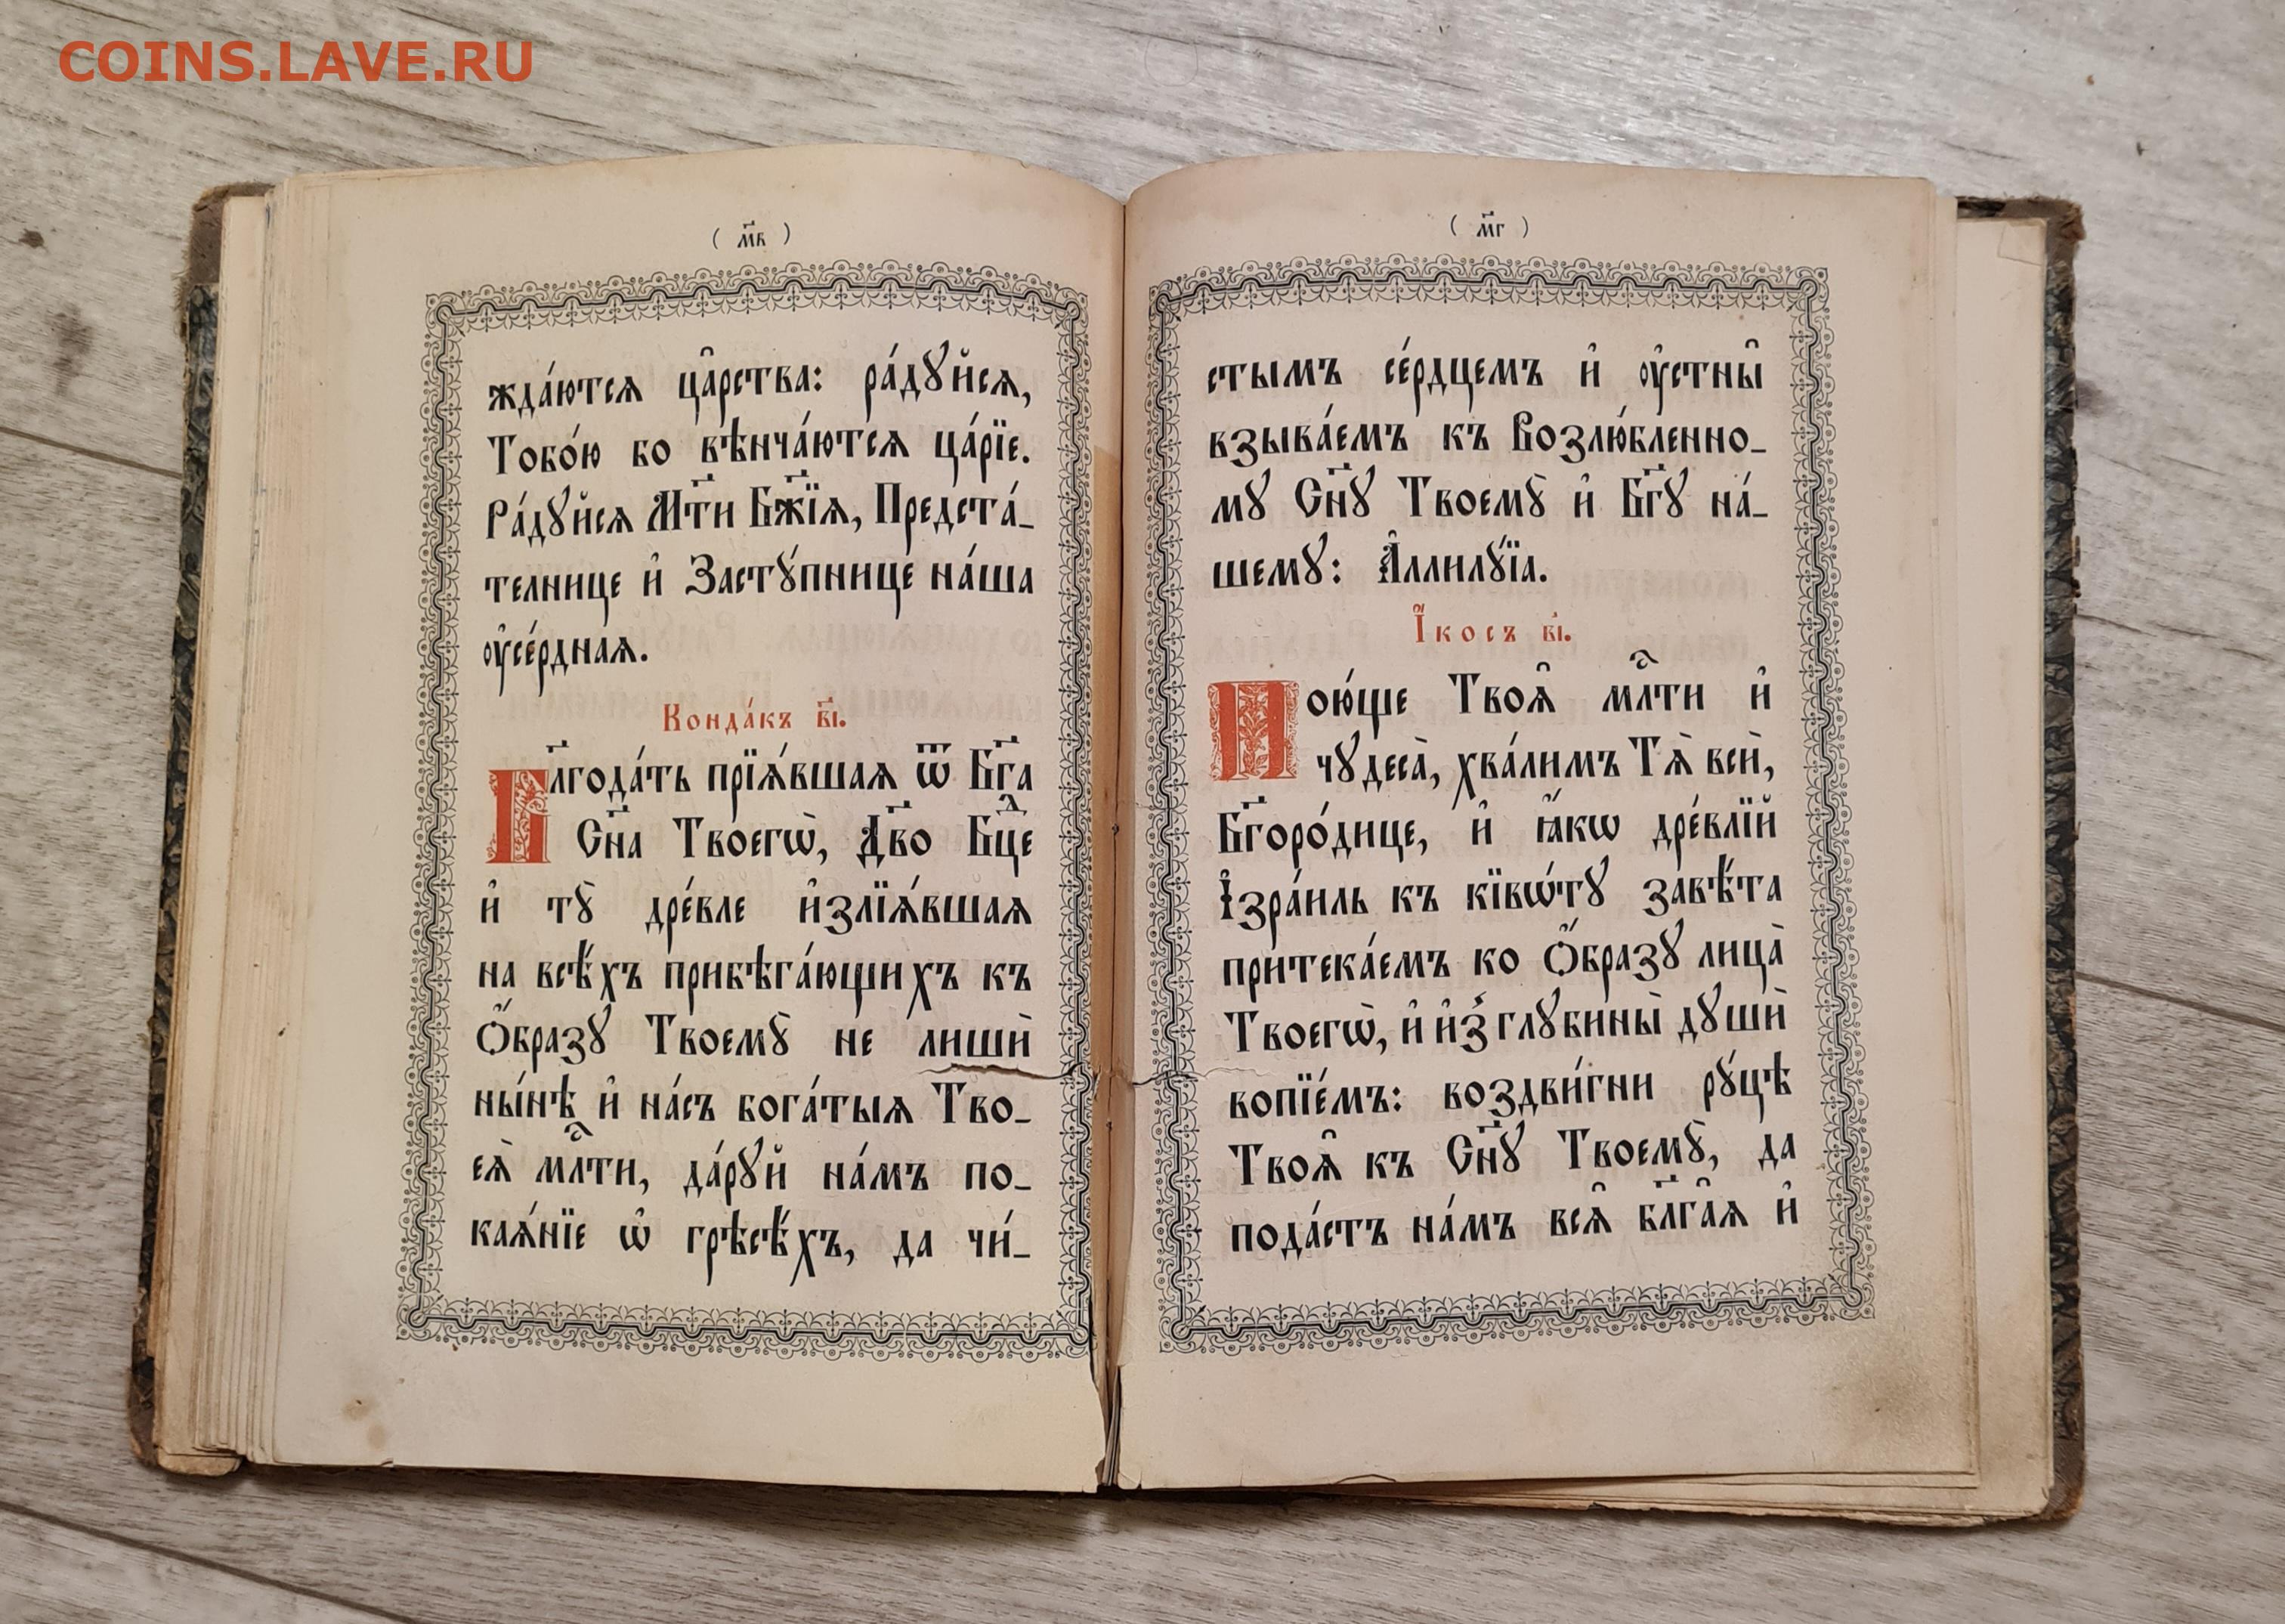 COINS.LAVE.RU
( м҃в )
жда́ются ца̑рства: ра́дꙋйся,
Тобо́ю бо вѣнча́ются ца́рїе.
Ра́дꙋйся Мт҃и Бж҃їя, Предста́-
телнице и҆ Застꙋ́пнице на́ша
ᲂу҆се́рдная.
Конда́къ в҃і.
Бл҃года́ть прїѧ́вшая ѿ Бг҃а
Сн҃а Твоегѡ̀, Дв҃о Бцⷣе
и҆ тꙋ̀ дре́вле и҆злїѧ́вшая
на всѣ́хъ прибѣга́ющихъ къ
Ѻ҆́бразꙋ Твоемꙋ̀ не лишѝ
ны́нѣ и҆ на́съ бога́тыѧ Тво-
еѧ̀ млⷭ҇ти, да́рꙋй на́мъ по-
каѧ́нїе ѡ҆ грѣсѣ́хъ, да чи́-
( м҃г )
стымъ се́рдцемъ и҆ ᲂу҆стны̑
взыва́емъ къ Возлю́бленно-
мꙋ Сн҃ꙋ Твоемꙋ̀ и҆ Бг҃ꙋ на́-
шемꙋ: А҆ллилꙋ́їа.
І҆́косъ в҃і.
Пою́ще Твоѧ̑ млⷭ҇ти и҆
чꙋдеса̀, хва́лимъ Тѧ̀ всѝ,
Бг҃оро́дице, и҆ ꙗ҆́кѡ дре́влїй
І҆зра́иль къ кївѡ́тꙋ завѣ́та
притека́емъ ко Ѻ҆́бразꙋ лица̀
Твоегѡ̀, и҆ и҆з̾ глꙋбины̀ дꙋшѝ
вопїе́мъ: воздви́гни рꙋ́цѣ
Твоѧ̑ къ Сн҃ꙋ Твоемꙋ̀, да
пода́стъ на́мъ всѧ̑ бл҃га̑ѧ и҆